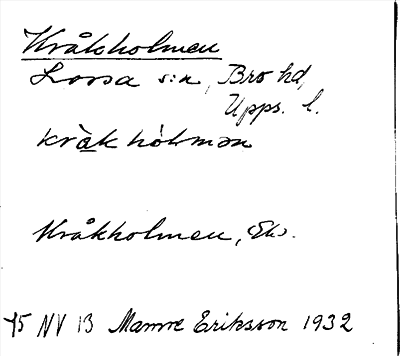 Kråkholmen
Lossa s:n, Bro hd,
Upps. l.
kràk hòlmən
Kråkholmen, Ek.
75 NV 13 Manne Eriksson 1932